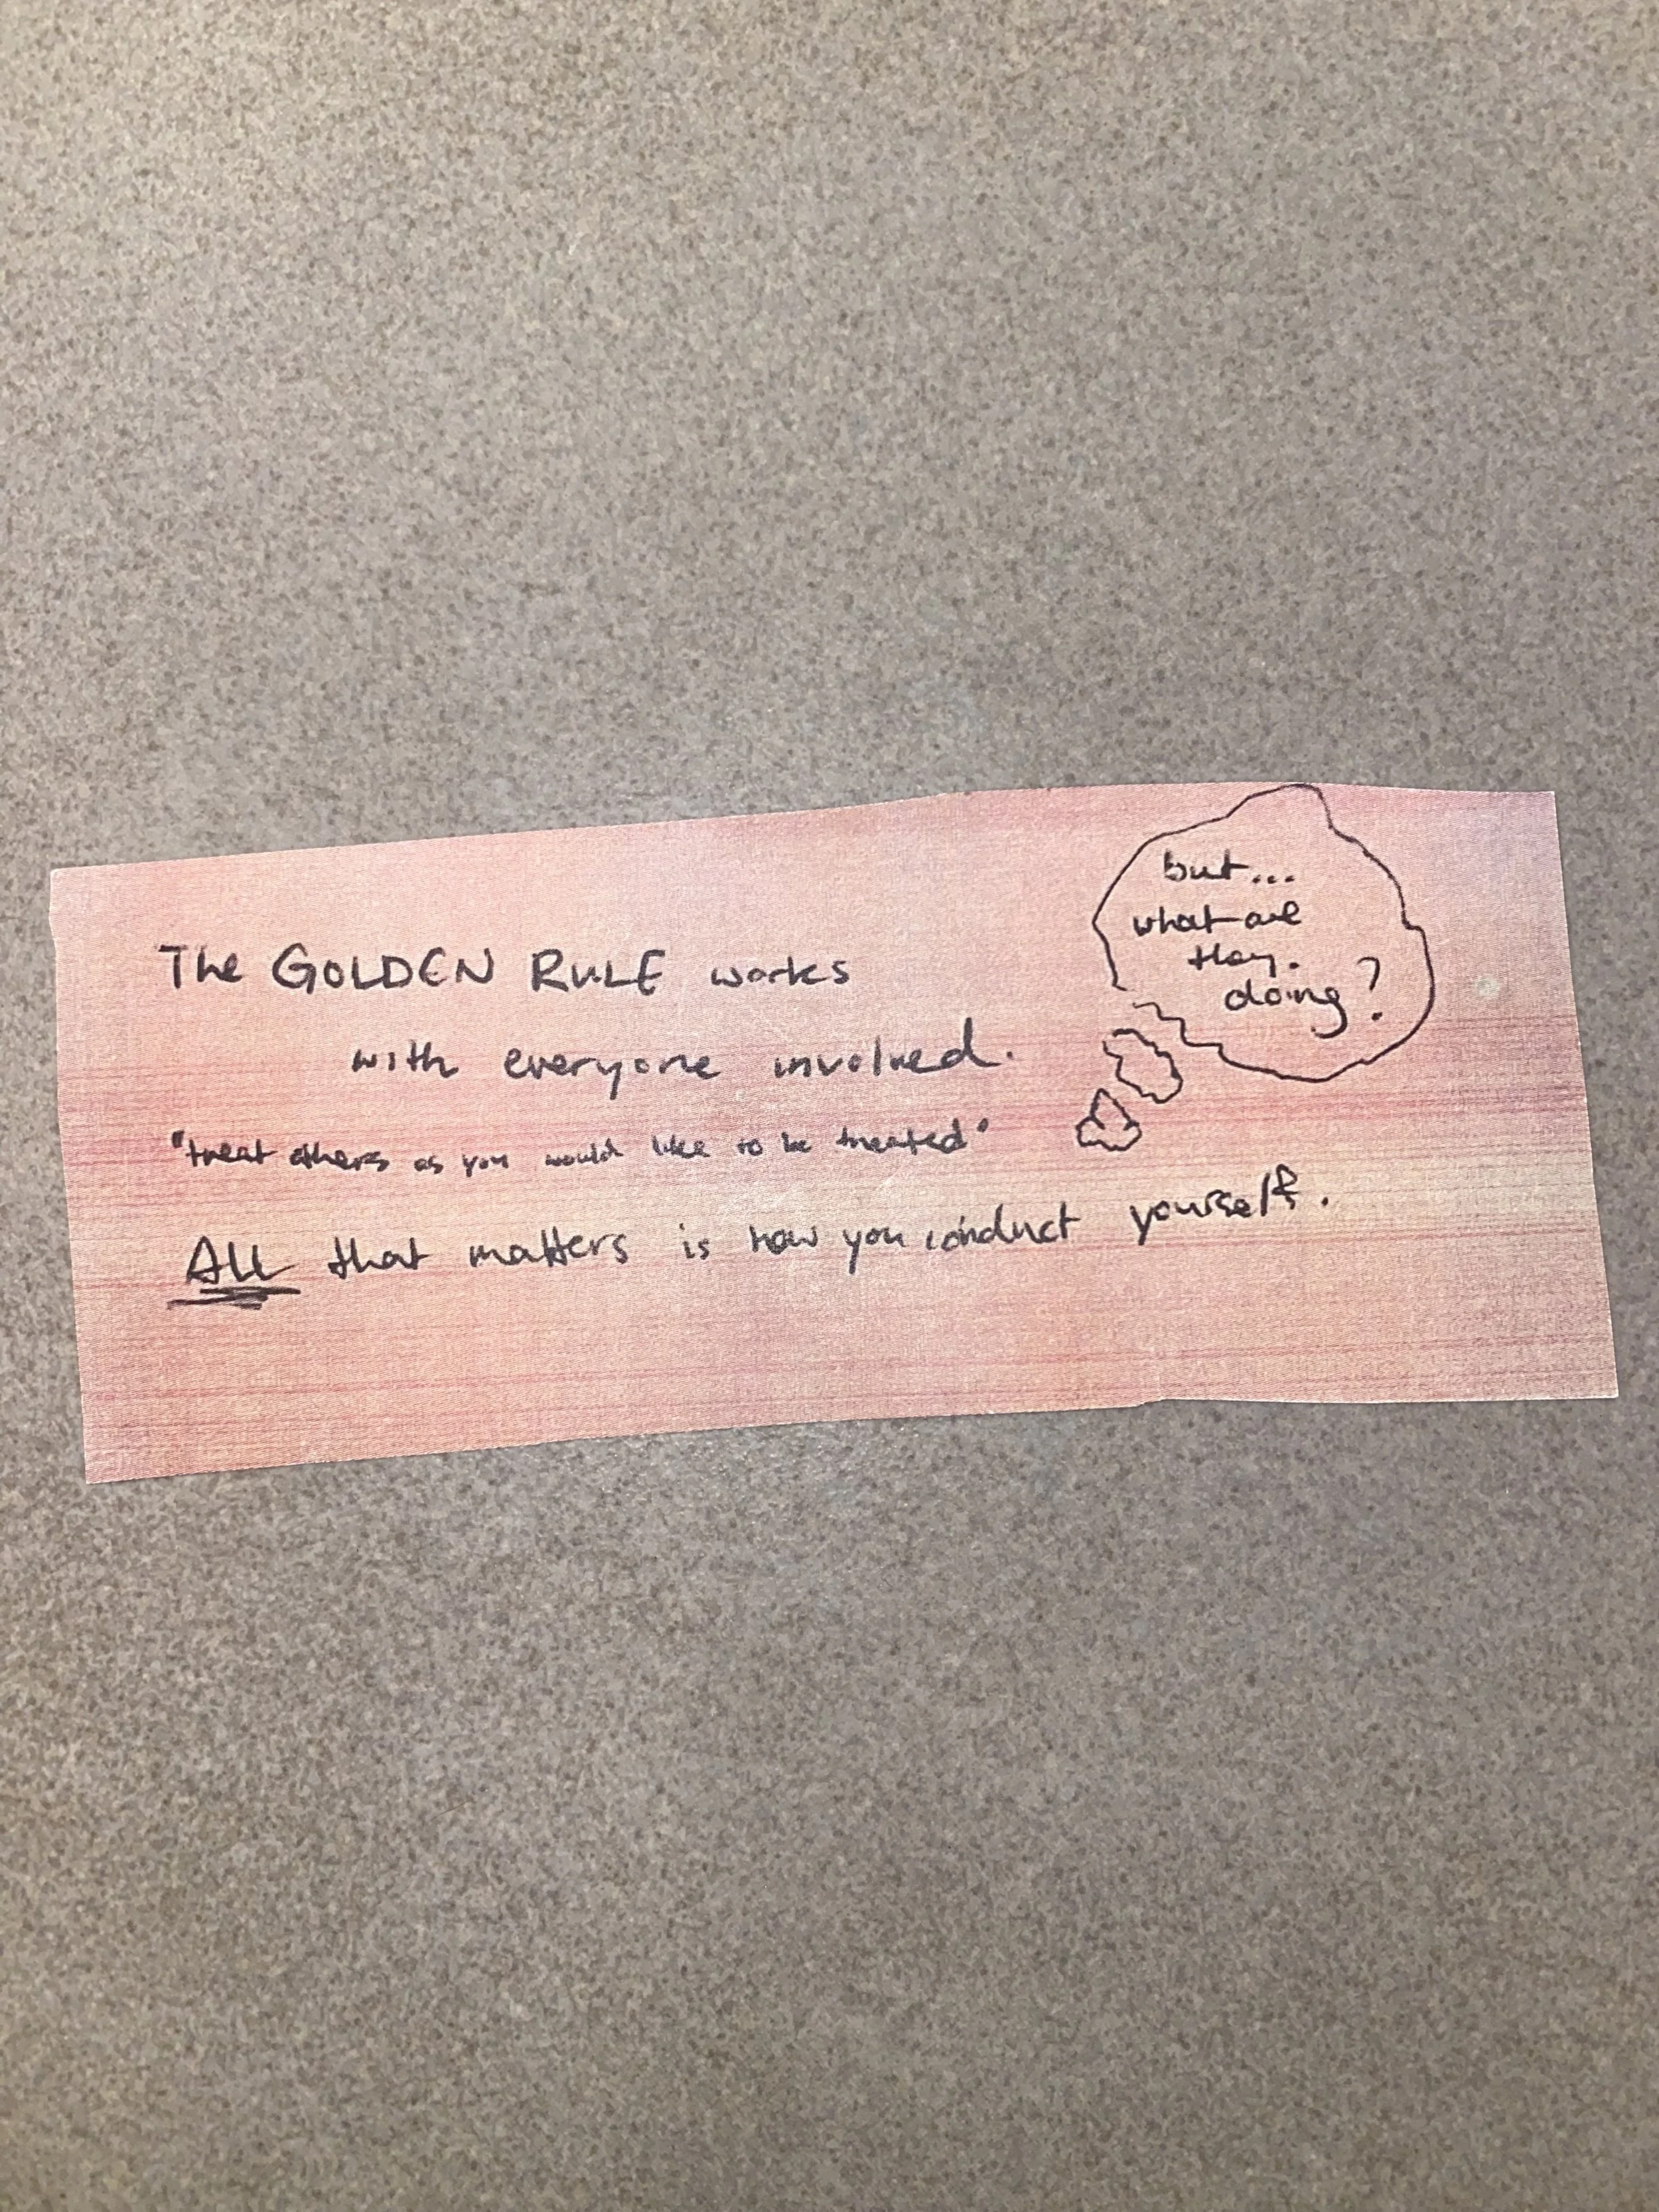 The GOLDEN RULE works
with everyone involved.
"treat others as you would like to be treated"
ALL that matters is how you conduct yourself.
but...
what are
they.
doing?